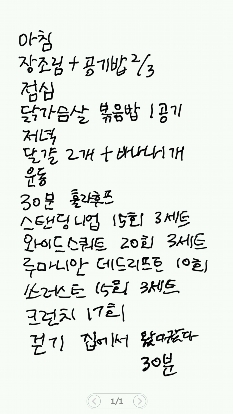 아침
장조림 + 공기밥 2/3
점심
닭가슴살 볶음밥 1공기
저녁
달걀 2개 + 바나나1개
운동
30분 훌라후프
스탠딩니업 15회 3세트
와이드스쿼트 20회 3세트
루마니안 데드리프트 10회
쓰러스트 15회 3세트
크런치 17회
걷기 집에서 왔다갔다
30분
1/1